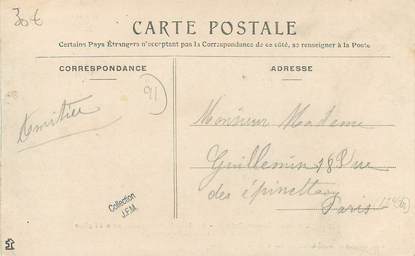 30€
CARTE POSTALE
Certains Pays Étrangers n'acceptant pas la Correspondance de ce côté, se renseigner à la Poste
CORRESPONDANCE
ADRESSE
91
Amitiés
Monsieur Madame
Guillemin 18 Rue
des épinettes
Paris
Collection
J.F.M.